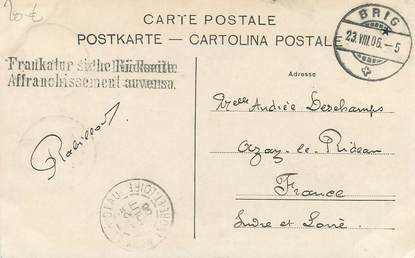 20 €
CARTE POSTALE
POSTKARTE — CARTOLINA POSTALE
BRIG
23.VIII.06.–5
Frankatur siehe Rückseite
Affranchissement au verso.
Adresse
Melle Andrée Deschamps
Azay-le-Rideau
France
Indre et Loire
Robillard